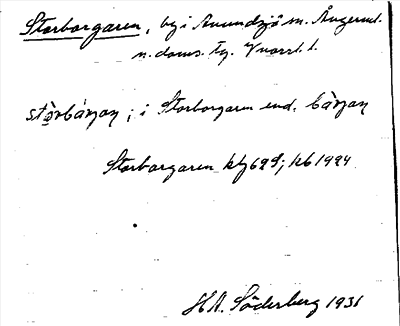 Storborgaren, by i Anundsjö sn. Ångerml.
n. doms. tg.
stɷ̀rbárjan; i Storborgaren end. bàrjan
Storborgaren kbf 698; kb 1924
H.A. Söderberg 1931